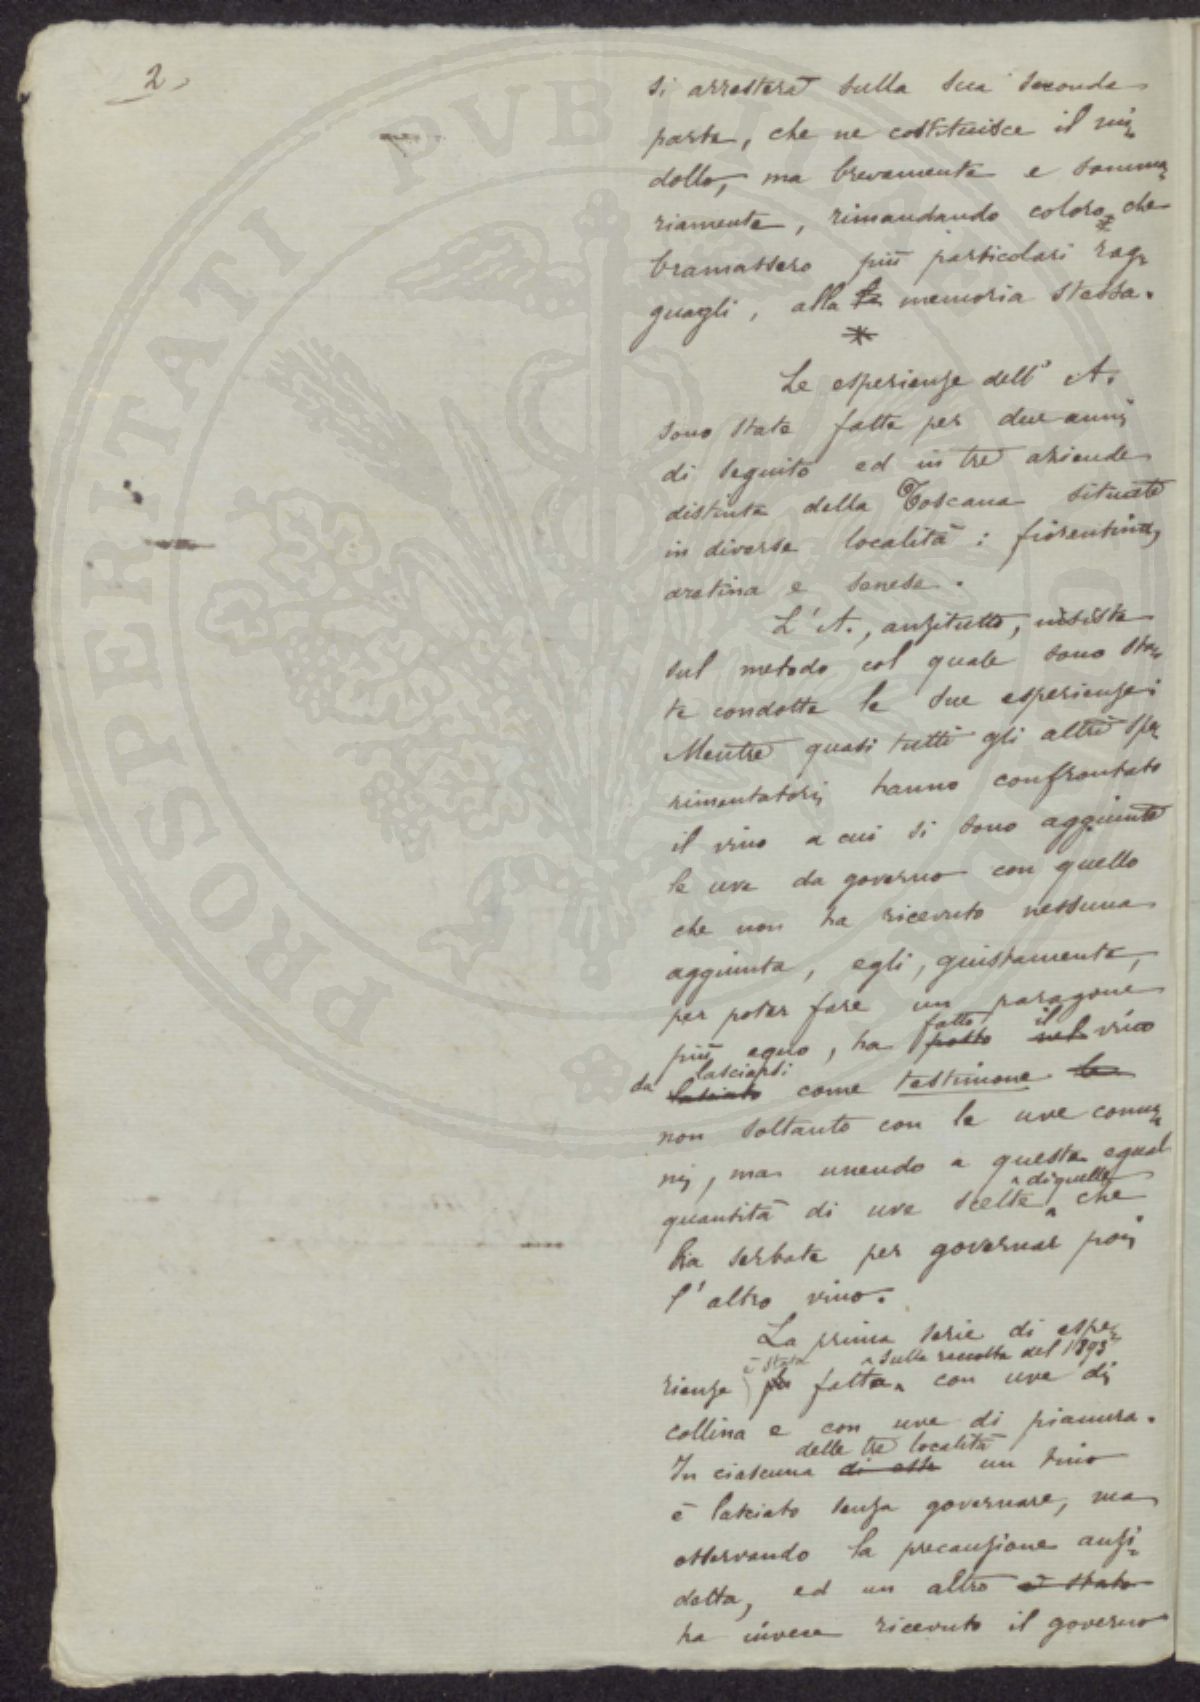 2.
si arresterà sulla sua seconda
parte, che ne costituisce il mi=
dollo, ma brevemente e somma=
riamente, rimandando coloro che
bramassero più particolari rag=
guagli, alla ~~la~~ memoria stessa.
Le esperienze dell' A.
sono state fatte per due anni
di seguito ed in tre aziende
distinte della Toscana situate
in diverse località: fiorentina,
aretina e senese.
L' A., anzitutto, insiste
sul metodo col quale sono sta=
te condotte le sue esperienze:
Mentre quasi tutti gli altri spe=
rimentatori hanno confrontato
il vino a cui si sono aggiunte
le uve da governo con quello
che non ha ricevuto nessuna
aggiunta, egli, giustamente,
per poter fare un paragone
più equo, ha ~~posto~~ fatto ~~nel~~ il vino
da ~~lasciato~~ lasciarsi come testimone ~~le~~
non soltanto con le uve comu=
ni, ma unendo a queste egual
quantità di uve scelte di quelle che
ha serbate per governar poi
l'altro vino.
La prima serie di espe=
rienze ~~fu~~ è stata fatta sulla raccolta del 1893 con uve di
collina e con uve di pianura.
In ciascuna ~~di esse~~ delle tre località un tino
è lasciato senza governare, ma
osservando la precauzione anzi=
detta, ed un altro ~~è stato~~
ha invece ricevuto il governo
PROSPERITATI PVBLICAE